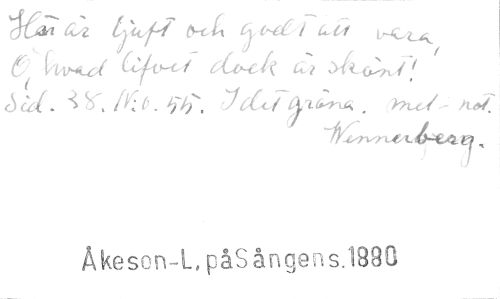 Här är ljuft och godt att vara,
O, hvad lifvet dock är skönt!
Sid. 38. N:o. 55. I det gröna. mel. not.
Wennerberg.
Åkeson-L, påSångens.1880